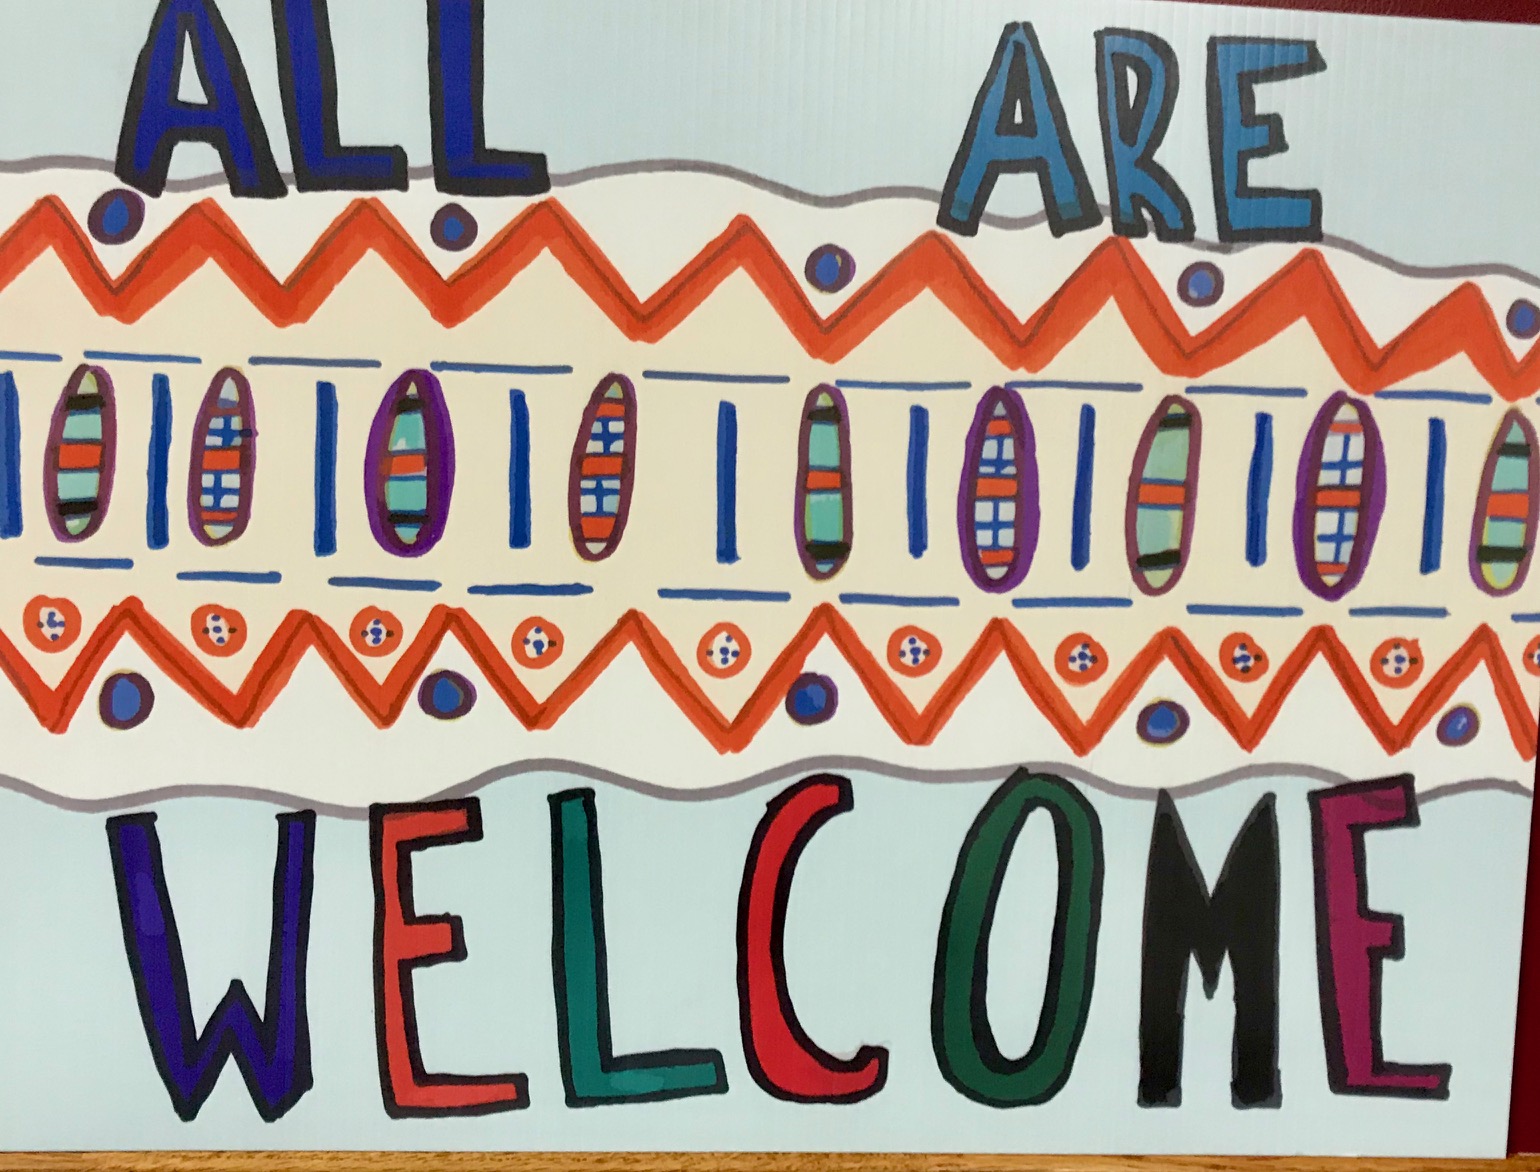 ALL ARE
WELCOME